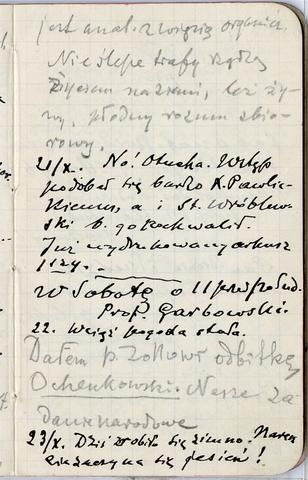 jest anal. z więzią organicz.
Nie ślepe trafy rządzą
życiem na ziemi, lecz ży-
wy, płodny rozum zbio-
rowy.
21/X. No! Otucha. Wstęp
podobał się bardzo K. Pawlic-
kiemu, a i St. Wróblew-
ski b. go pochwalił.
Już wydrukowany arkusz
1szy.
W Sobotę o 11 przedpołud.
Prof. Garbowski.
22. Wciąż pogoda stała.
Dałem p. Zollowi odbitkę
Ochenkowski. Nasze za-
danie narodowe
23/X. Dziś zrobiło się zimno. Nareszcie
zaczyna się jesień!